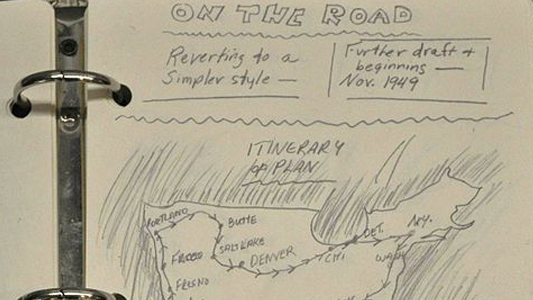 ON THE ROAD
Reverting to a
Simpler style —
Further draft +
beginnings —
Nov. 1949
ITINERARY
of PLAN
PORTLAND
BUTTE
N.Y.
DET.
SALT LAKE
DENVER
CHI
WASH
FRESNO